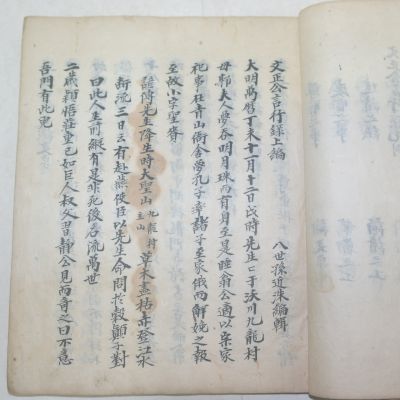 文正公言行錄上編
八世孫近洙編輯
大明萬曆丁未十一月十二日戌時先生生于沃川九龍村
母郭夫人夢吞明月珠而有身至是睡翁公適以宗家
祀事在青山衙舍夢孔子率諸子至家俄而解娩之報
至故小字聖賚
諺傳先生降生時大聖山九龍村主山草木盡枯赤登江水
斷流三日云有赴燕使臣以先生命問於穀顚子對
曰此人生前縱有是非死後名流萬世
二歲穎悟莊重已如巨人叔父習靜公見而奇之曰不意
吾門有此兒